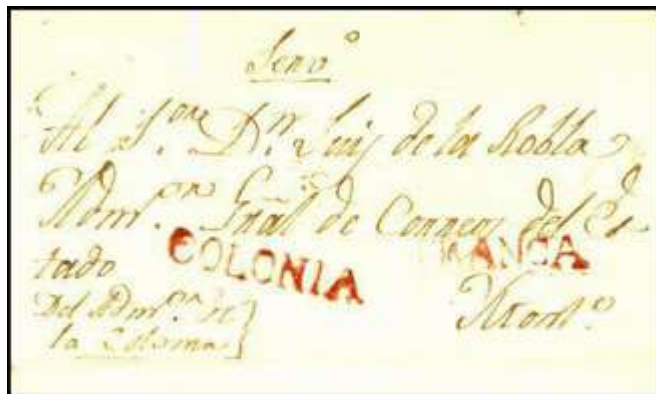 Serv.º
Al S.ᵒʳ D.ⁿ Luis de la Robla
Adm.ᵒʳ Gñal de Correos del Es-
tado
COLONIA RANCA
Del Adm.ᵒʳ de
la Colonia
Mont.º